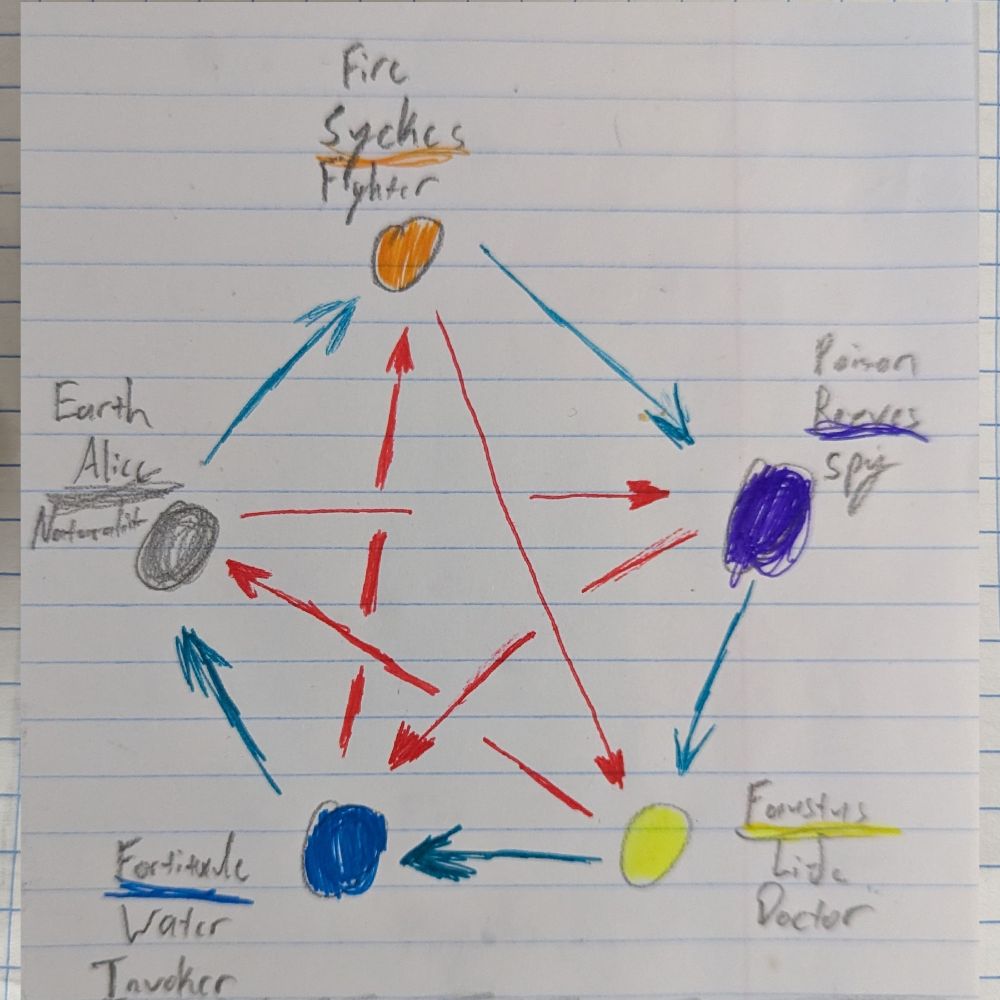 Fire
Syckes
Fighter
Poison
Reeves
Spy
Earth
Alice
Naturalist
Faustus
Life
Doctor
Fortitude
Water
Invoker